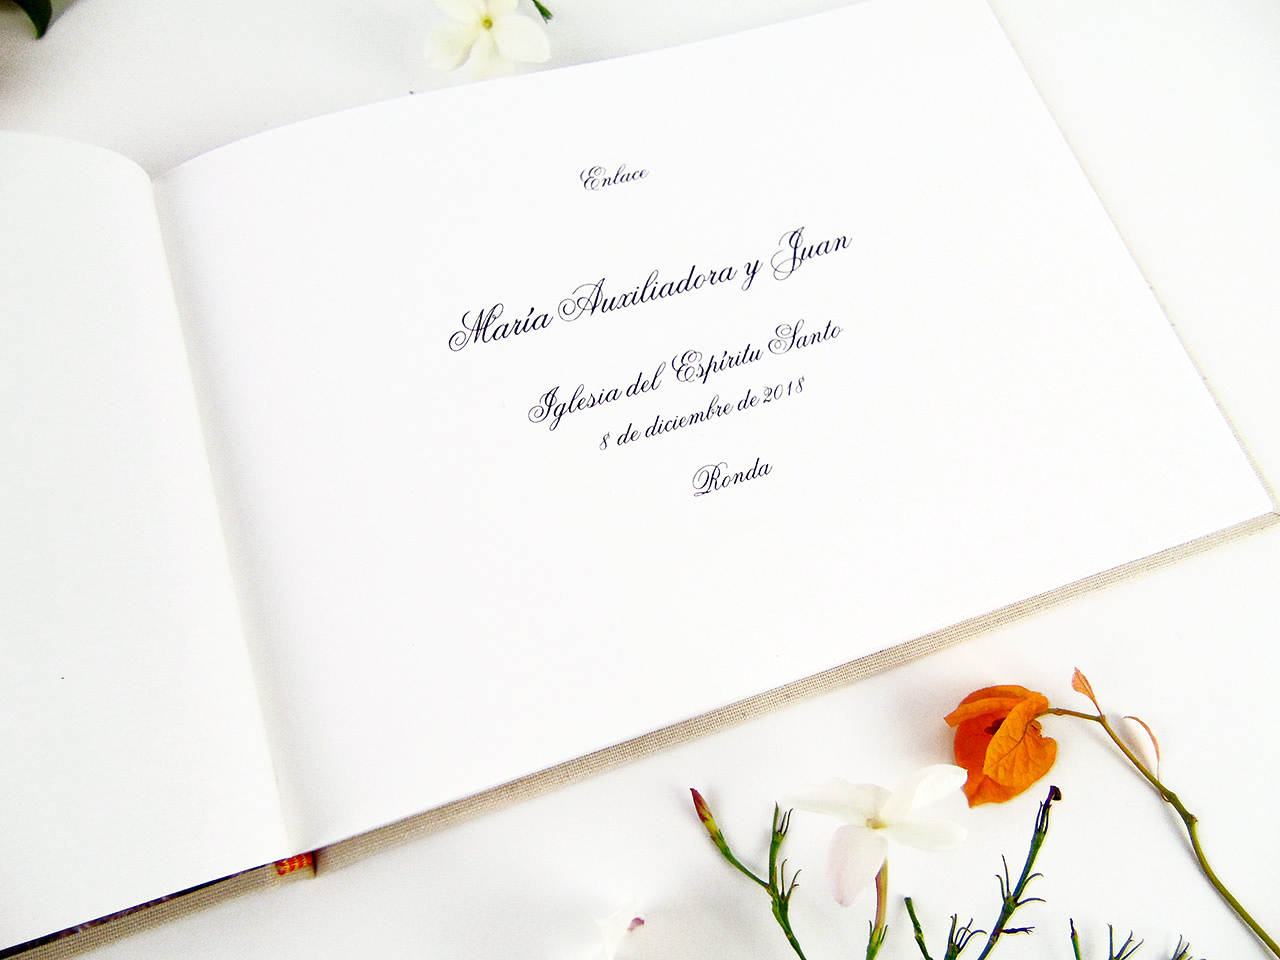 Enlace
María Auxiliadora y Juan
Iglesia del Espíritu Santo
8 de diciembre de 2018
Ronda